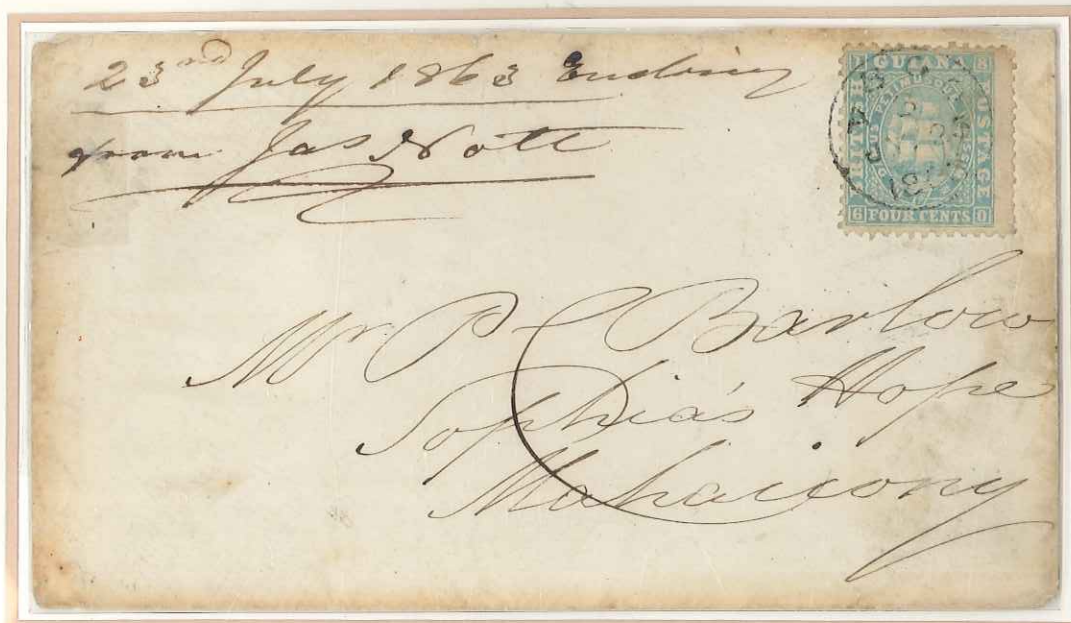 23rd July 1863
from Jas Nott
BRITISH
GUIANA
POSTAGE
1 8
6 0
FOUR CENTS
Mr P C Barlow
Sophia's Hope
Mahaicony